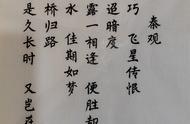 秦观
巧 飞星传恨
迢暗度
露一相逢 便胜却
水 佳期如梦
桥归路
是久长时 又岂在